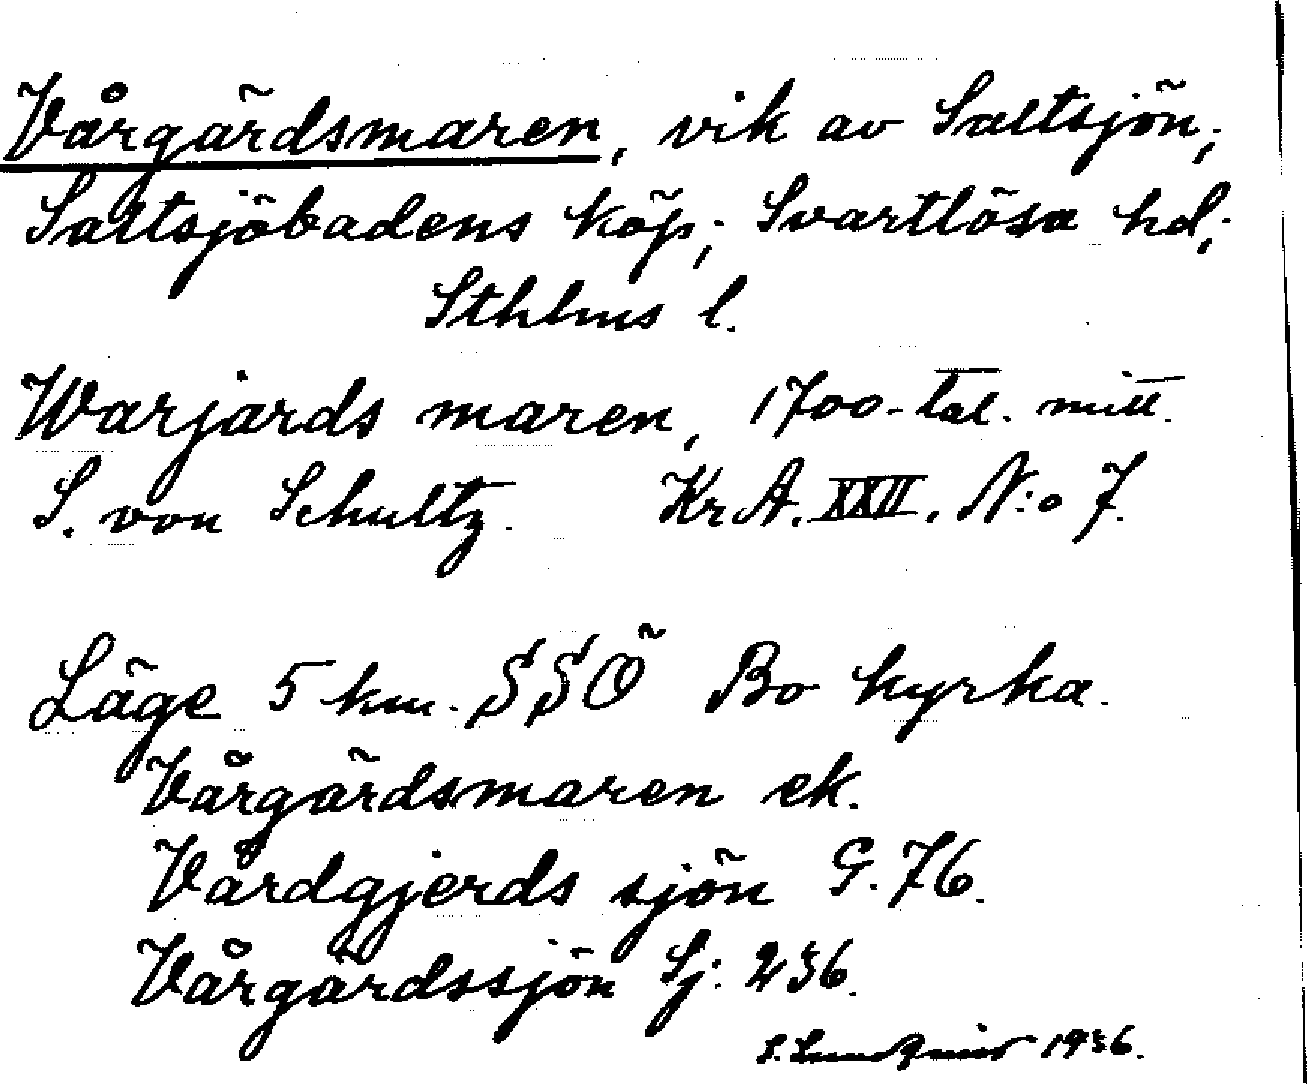 Vårgärdsmaren, vik av Saltsjön,
Saltsjöbadens köp, Svartlösa hd,
Sthlms l.
Warjards maren, 1700-tal. mitt.
S. von Schultz. Kr A. XXII. N:o 7.
Läge 5 km. SSÖ Bo kyrka.
Vårgärdsmaren ek.
Vårdgjerds sjön G. 76.
Vårgärdssjön Sj: 236.
S. Lundqvist 1936.